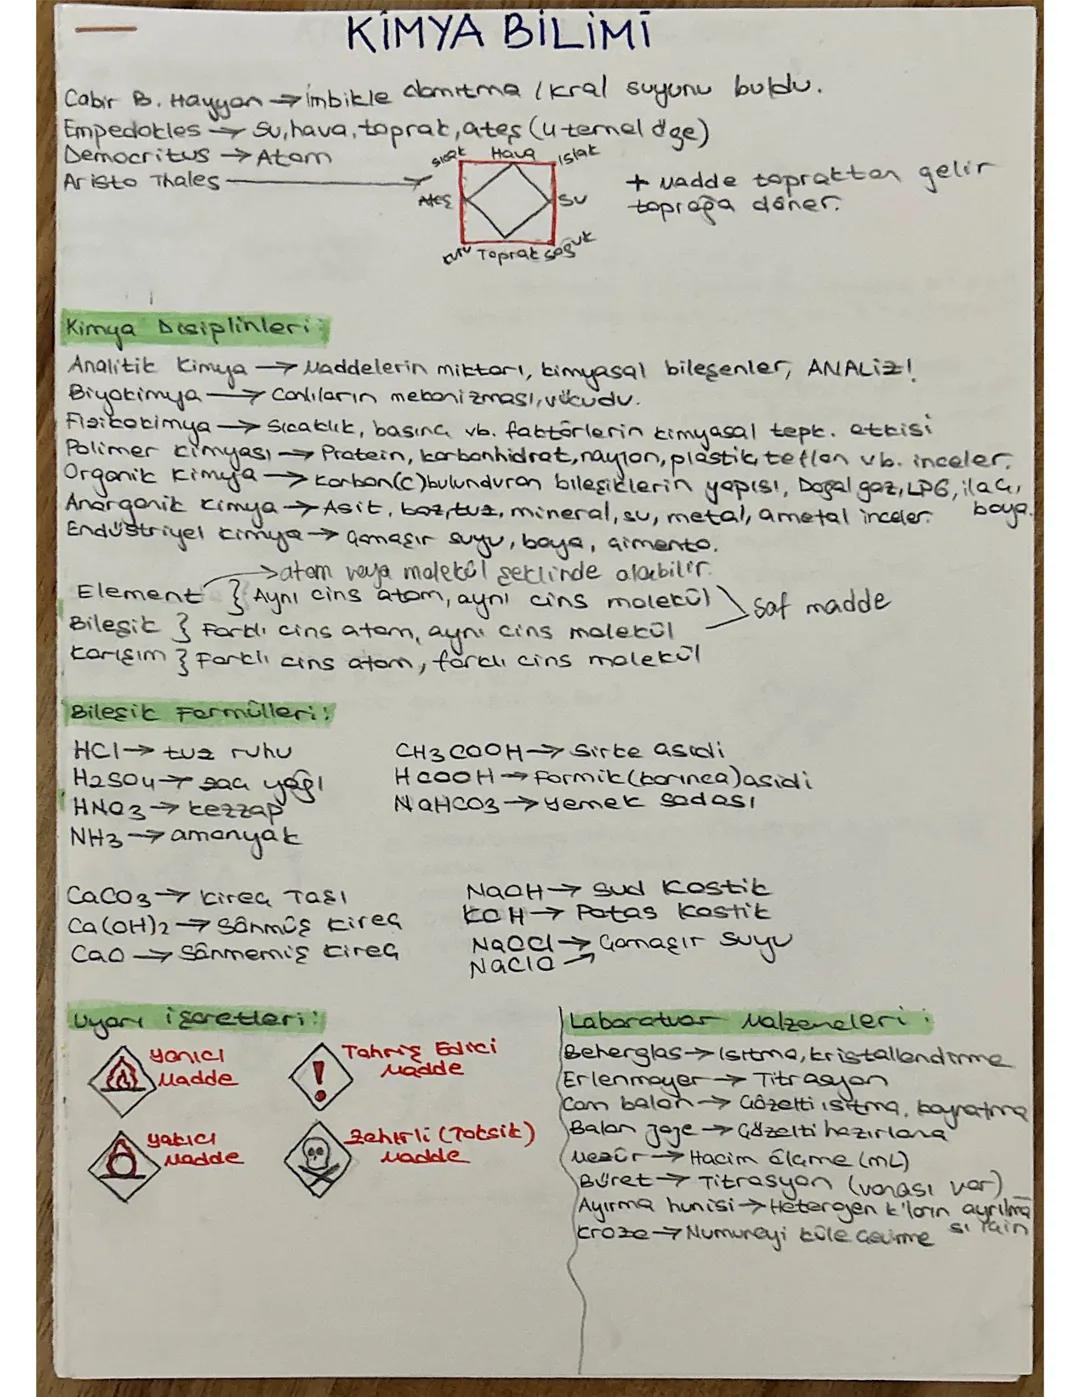 KİMYA BİLİMİ
Cabir B. Hayyan → imbikle damıtma / kral suyunu buldu.
Empedokles → Su, hava, toprak, ateş (4 temel öğe)
Democritus → Atom
Aristo Thales →
sıcak Hava ıslak
Ateş Su
kuru Toprak soğuk
+ Madde topraktan gelir
toprağa döner.
Kimya Disiplinleri:
Analitik Kimya → Maddelerin miktarı, kimyasal bileşenler, ANALİZ!
Biyokimya → Canlıların mekanizması, vücudu.
Fizikokimya → Sıcaklık, basınç vb. faktörlerin kimyasal tepk. etkisi
Polimer kimyası → Protein, karbonhidrat, naylon, plastik, teflon vb. inceler.
Organik Kimya → Karbon(C) bulunduran bileşiklerin yapısı, Doğal gaz, LPG, ilaç,
boya.
Anorganik Kimya → Asit, baz, tuz, mineral, su, metal, ametal inceler.
Endüstriyel kimya → Çamaşır suyu, boya, çimento.
→ atom veya molekül şeklinde olabilir.
Element } Aynı cins atom, aynı cins molekül
Bileşik } Farklı cins atom, aynı cins molekül
saf madde
Karışım } Farklı cins atom, farklı cins molekül
Bileşik Formülleri:
HCl → tuz ruhu
H2SO4 → zaç yağı
HNO3 → kezzap
NH3 → amonyak
CH3COOH → Sirke asidi
HCOOH → Formik (karınca) asidi
NaHCO3 → Yemek sodası
CaCO3 → Kireç Taşı
Ca(OH)2 → Sönmüş kireç
CaO → Sönmemiş kireç
NaOH → Sud Kostik
KOH → Potas Kostik
NaOCl → Çamaşır Suyu
NaClO
Uyarı işaretleri:
Yanıcı
Madde
Tahriş Edici
Madde
Yakıcı
Madde
Zehirli (Toksik)
Madde
Laboratuar Malzemeleri:
Beherglas → Isıtma, kristallendirme
Erlenmayer → Titrasyon
Cam balon → Çözelti ısıtma, kaynatma
Balon joje → Çözelti hazırlana
Mezür → Hacim ölçme (mL)
Büret → Titrasyon (vanası var)
Ayırma hunisi → Heterojen k'ların ayrılma
sı için
Kroze → Numuneyi küle çevirme